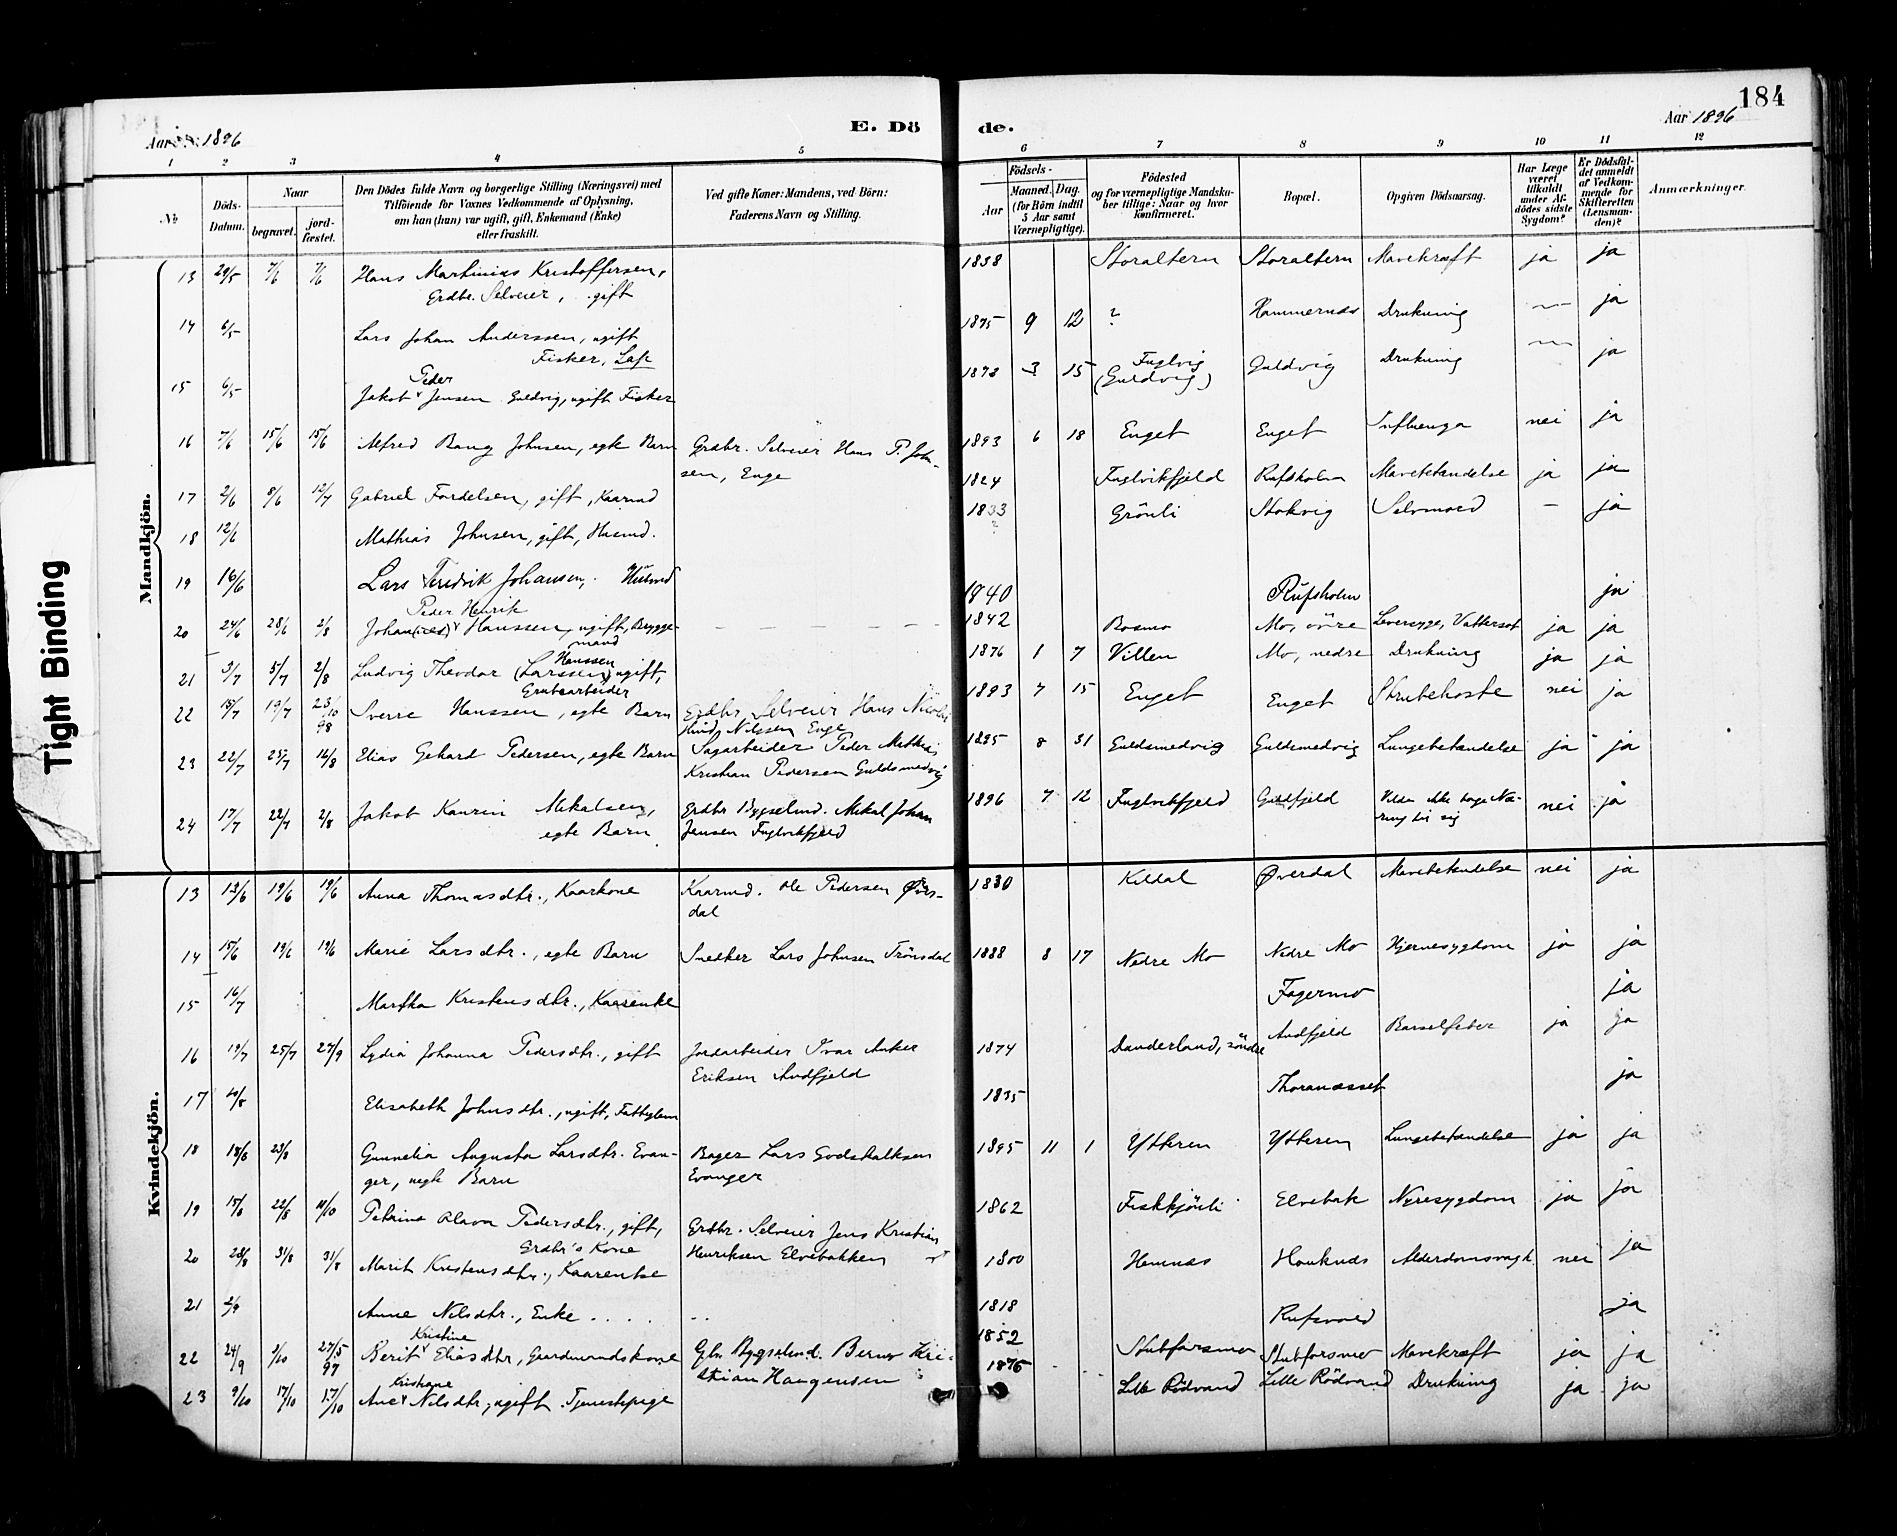 184
Aar 1896
E. Dö
de.
Aar 1896
1 2 3 4 5 6 7 8 9 10 11 12
No
Döds-Datum.
Naar
begravet.
jord-fæstet.
Den Dödes fulde Navn og borgerlige Stilling (Næringsvei) med
Tilföiende for Voxnes Vedkommende af Oplysning,
om han (hun) var ugift, gift, Enkemand (Enke)
eller fraskilt.
Ved gifte Koner: Mandens, ved Börn:
Faderens Navn og Stilling.
Födsels-
Aar
Maaned. Dag.
(for Börn indtil
5 Aar samt
Værnepligtige).
Födested
og for værnepligtige Mandskaber tillige: Naar og hvor Konfirmeret.
Bopæl.
Opgiven Dödsaarsag.
Har Læge været tilkaldt under Afdödes sidste Sygdom?
Er Dödsfaldet anmeldt af Vedkommende for Skifteretten (Lensmanden)?
Anmærkninger.
Tight Binding
Mandkjön.
13 29/5 7/6 7/6 Hans Martinius Kristoffersen, 1838 Storaltern Storaltern Mavekræft ja ja
Grdbr. Selveier, gift
14 6/5 Lars Johan Anderssen, ugift 1875 9 12 ? Hammernes Drukning — ja
Fisker, Lap
15 6/5 Jakob Peder Jensen Guldvig, ugift Fisker 1873 3 15 Fuglvig (Guldvig) Guldvig Drukning — ja
16 7/6 15/6 15/6 Alfred Bang Johnsen, egte Barn Grdbr. Selveier Hans P. John- 1893 6 18 Enget Enget Influenza nei ja
sen, Enge
17 2/6 8/6 12/7 Gabriel Fordelsen, gift, Kaarmd 1824 Fuglvikfjeld Rufsholm Mavebetændelse ja ja
18 12/6 Mathias Johnsen, gift, Husmd. 1833 ? Grönli Stokvig Selvmord — ja
19 16/6 Lars Fredrik Johansen, Husmd 1840 Rufsholm ja
20 24/6 28/6 2/8 Johan(nes) Peder Henrik Hanssen, ugift, Brygge- 1842 Bosmo Mo, övre Leversyge, Vattersot ja ja
mand
21 3/7 5/7 2/8 Ludvig Theodor (Larssen) Hanssen ugift, 1876 1 7 Villen Mo, nedre Drukning ja ja
Grubearbeider
22 15/7 19/7 25/10 98 Sverre Hanssen, egte Barn Grdbr Selveier Hans Nicolai 1893 7 15 Enget Enget Strubehoste nei ja
Nilssen Enge
23 22/7 25/7 16/8 Elias Gehard Pedersen, egte Barn Sagarbeider Peder Mathias 1895 8 31 Guldsmedvig Guldsmedvig Lungebetændelse ja ja
Kristian Pedersen Guldsmedvig
24 17/7 22/7 2/8 Jakob Kaurin Mikalsen, Grdbr Bygselmd. Mikal Johan 1896 7 12 Fuglvikfjeld Guldfjeld Vilde ikke tage Næ- nei ja
egte Barn Jensen Fuglvikfjeld ring til sig
Kvindekjön.
13 13/6 19/6 19/6 Anna Thomasdtr., Kaarkone Kaarmd. Ole Pedersen Övers- 1830 Kildal Øverdal Mavebetændelse nei ja
dal
14 15/6 19/6 19/6 Marie Larsdtr., egte Barn Snedker Lars Johnsen Trönsdal 1888 8 17 Nedre Mo Nedre Mo Hjernesygdom ja ja
15 16/7 Martha Kristensdtr., Kaarenke Fagermo ja
16 19/7 25/7 27/9 Lydia Johanna Pedersdtr., gift Jordarbeider Ivar Anker 1874 Dunderland, söndre Andfjeld Barselfeber ja ja
Eriksen Andfjeld
17 4/8 Elisabeth Johnsdtr., ugift, Fattiglem 1835 Thoranesset ja
18 18/8 23/8 Gunnelia Augusta Larsdtr. Evan- Bager Lars Godskalksen 1895 11 1 Ytteren Ytteren Lungebetændelse ja ja
ger, uegte Barn Evanger
19 15/8 22/8 11/10 Petrine Olava Pedersdtr., gift, Grdbr. Selveier Jens Kristian 1862 Fiskkjönli Elvebak Nyresygdom ja ja
Grdbr's Kone Henriksen Elvebakken
20 28/8 31/8 31/8 Marit Kristensdtr., Kaarenke 1800 Hemnes Hauknes Alderdomssvagh. nei ja
21 2/9 Anne Nilsdtr., Enke 1818 Rufsvold ja
22 24/9 2/10 27/5 97 Berit Kristine Eliasdtr, Gaardmandskone Gbr. Bygselmd. Bernt Kri- 1852 Stubforsmo Stubforsmo Mavekræft ja ja
stian Haugensen
23 9/10 17/10 17/10 Ane Kristiane Nilsdtr, ugift Tjenestepige 1876 Lille Rödvand Lille Rödvand Drukning ja ja